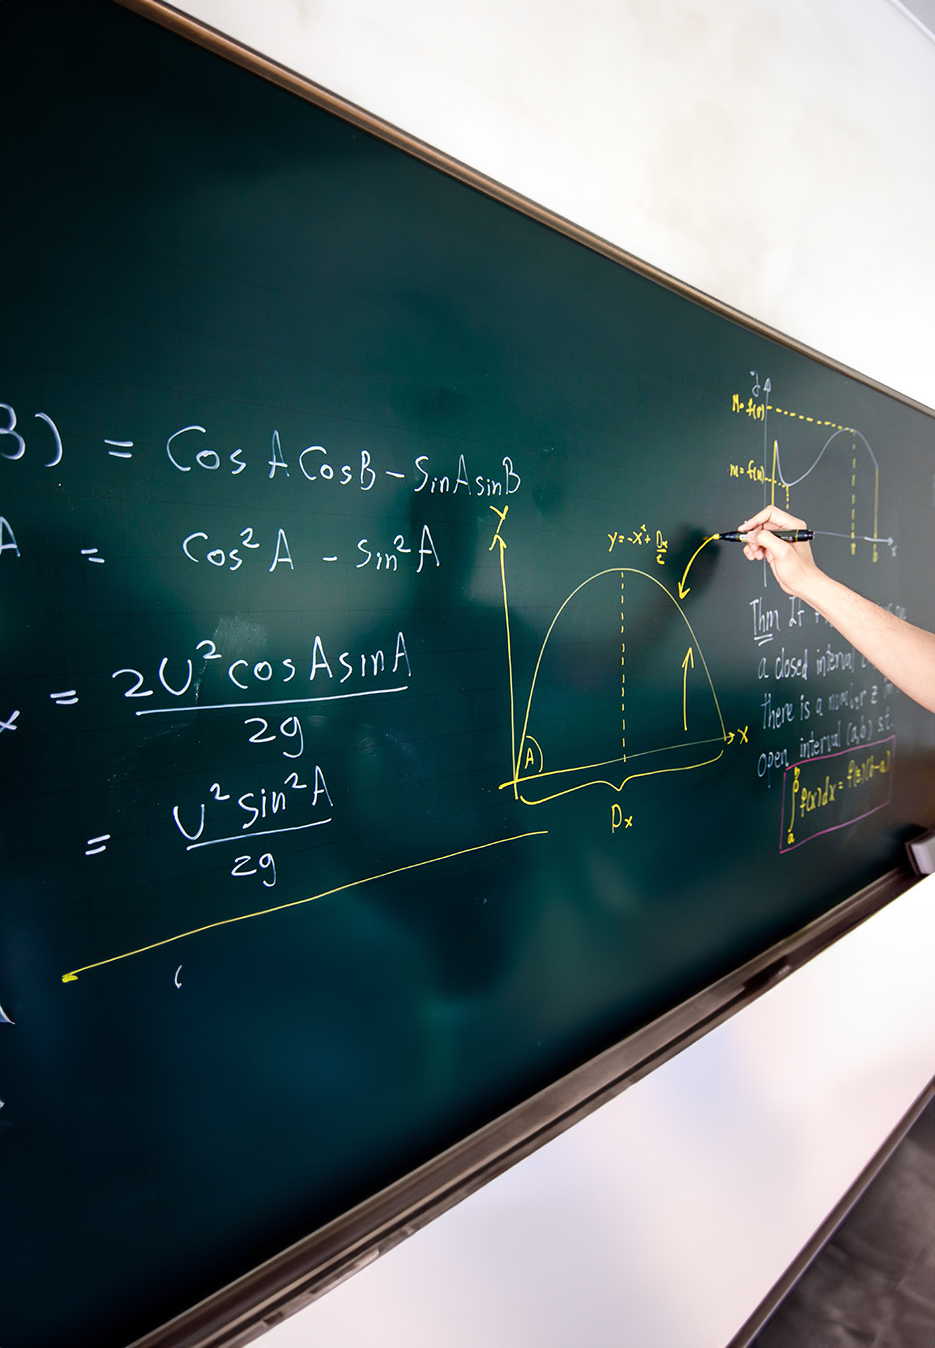 B) = Cos A Cos B - Sin A sin B
A = Cos² A - sin² A
x = 2U² cos A sin A / 2g
= U² sin² A / 2g
(
Y
y = -x² +
A
x
Dx
y
M =
m =
x
Thm If
a closed interval
there is a number z
open interval (a,b) s.t.
∫ₐᵇ f(x)dx = f(z)(b-a)